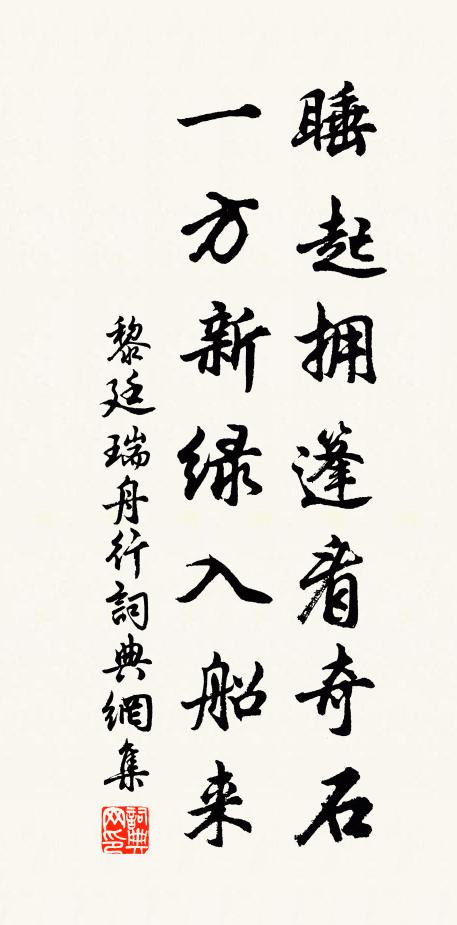 睡起拥篷看奇石
一方新绿入船来
黎廷瑞舟行詞典網集
詞典网印